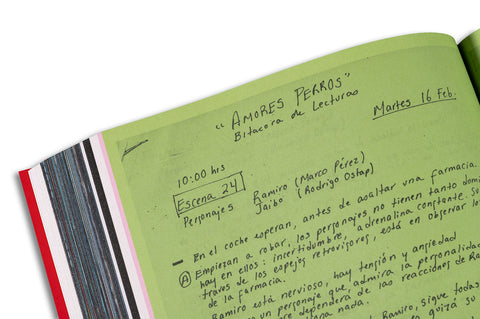 "AMORES PERROS"
Bitacora de Lecturas
Martes 16 Feb.
10:00 hrs
Escena 24
Personajes Ramiro (Marco Pérez)
Jaibo (Rodrigo Ostap)
— En el coche esperan, antes de asaltar una farmacia.
Ⓐ Empiezan a robar, los personajes no tienen tanto domi
hay en ellos: incertidumbre, adrenalina constante. Su
traves de los espejos retrovisores, está en observar lo
de la farmacia.
Ramiro está nervioso, hay tensión y ansiedad
un personaje que admira la personalidad
dependera de las reacciones de Ra
nada.
Ramiro, sigue todas
quizá su